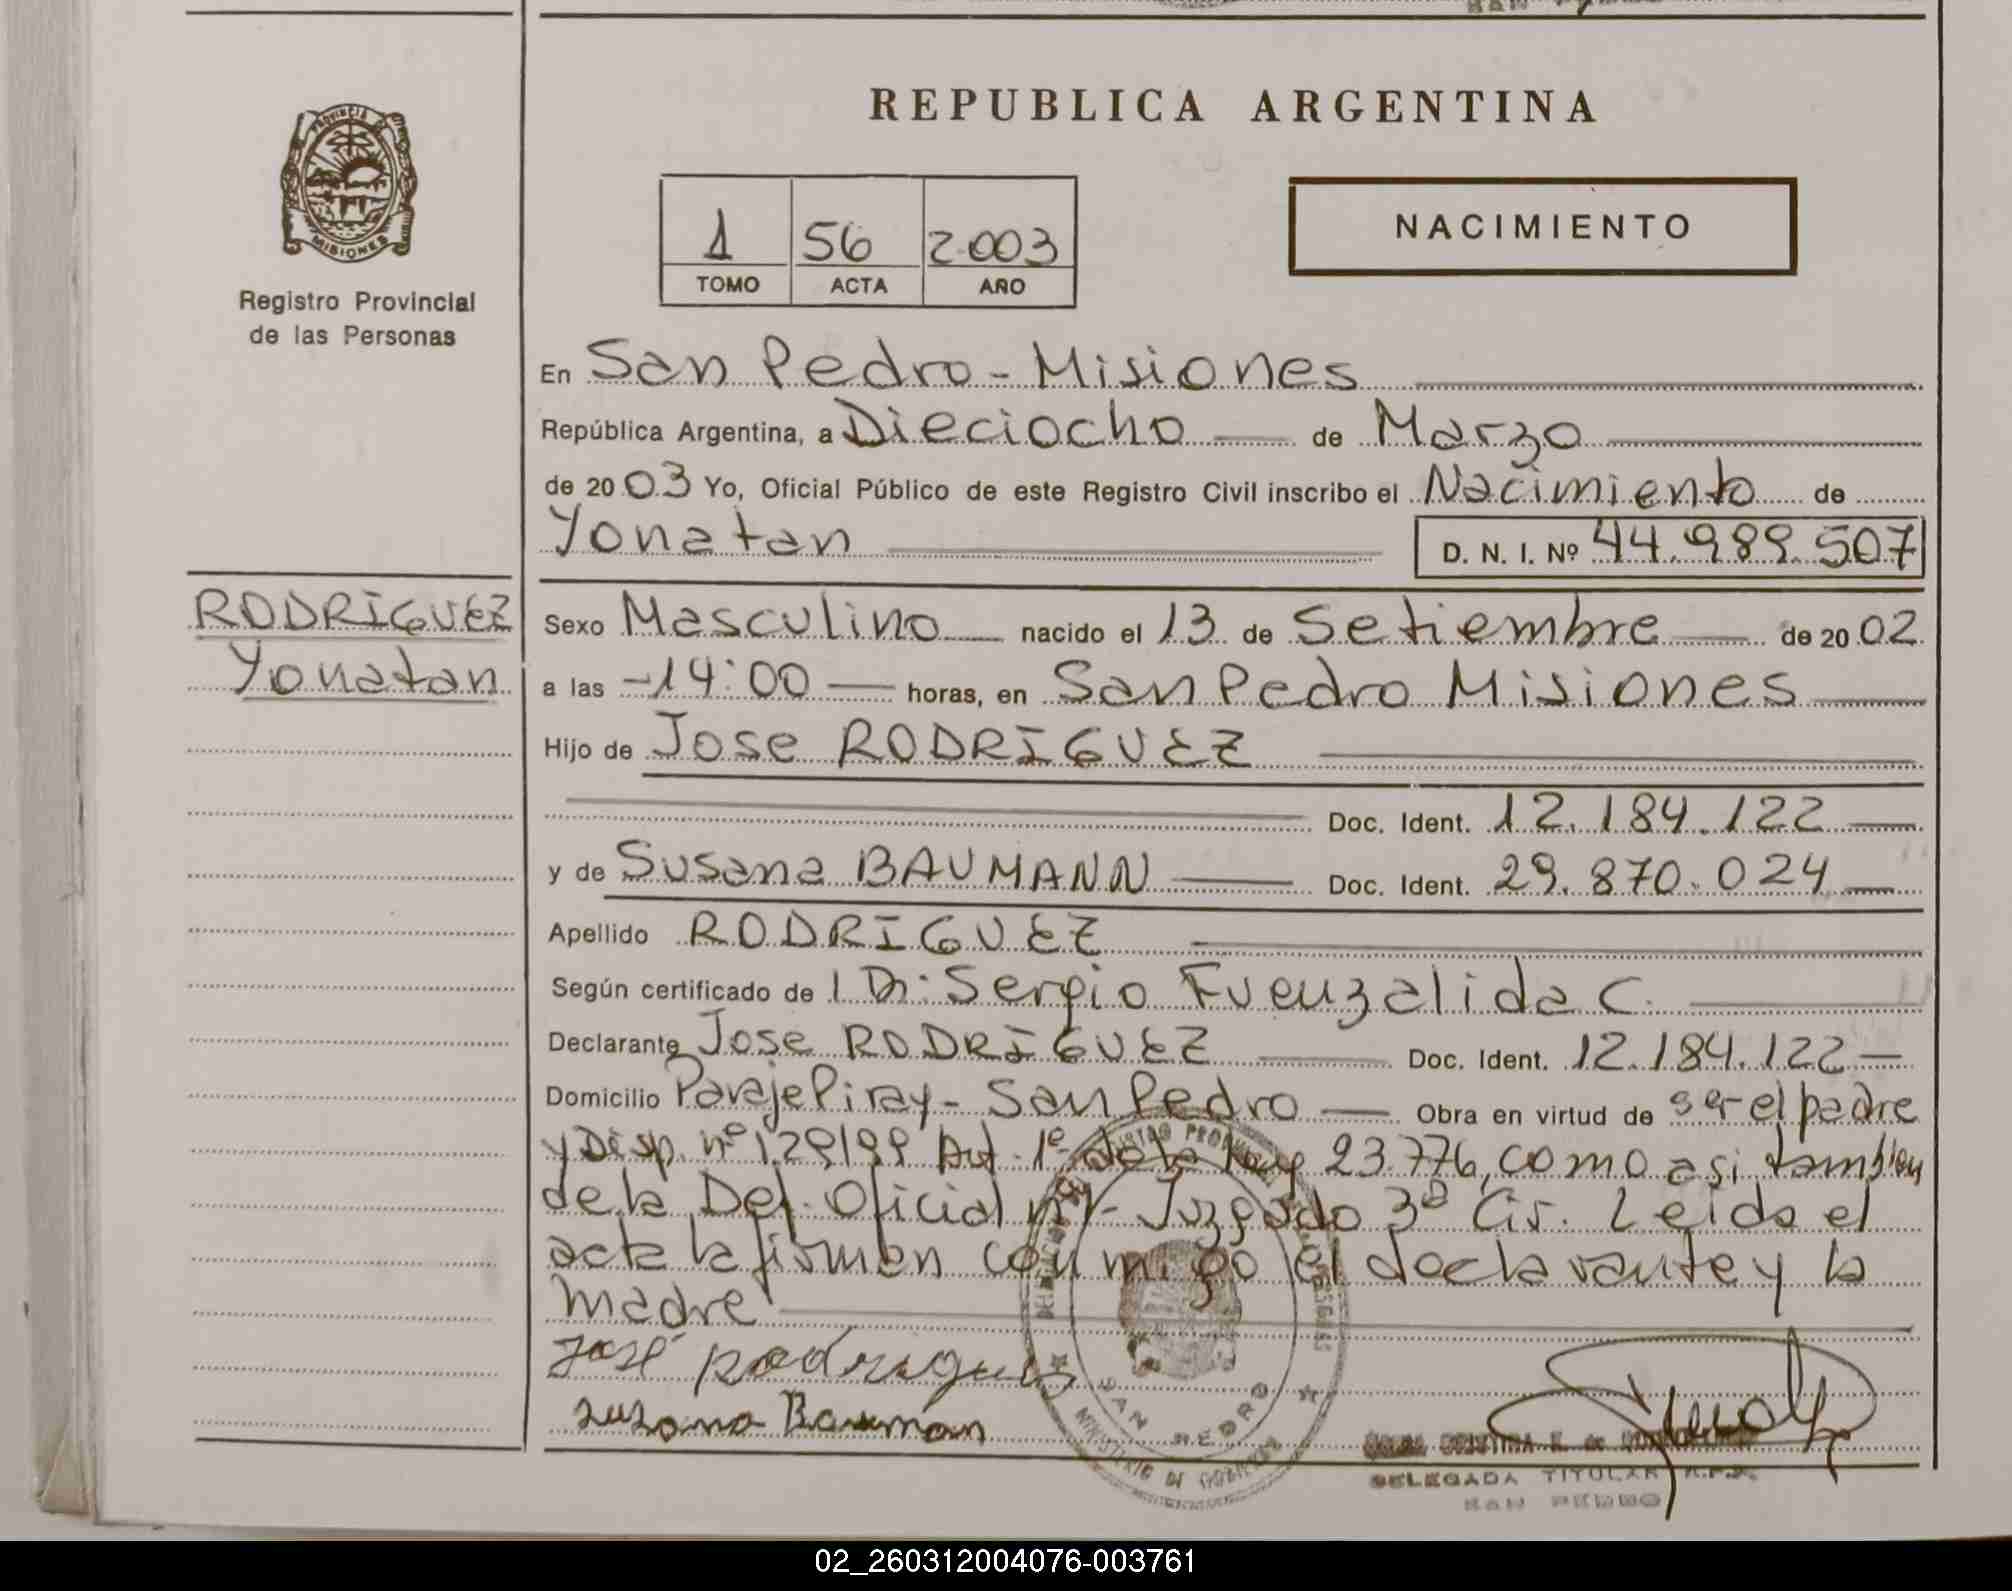 REPUBLICA ARGENTINA
PROVINCIA DE
MISIONES
Registro Provincial
de las Personas
1 56 2.003
TOMO ACTA AÑO
NACIMIENTO
En San Pedro - Misiones
República Argentina, a Dieciocho de Marzo
de 2003 Yo, Oficial Público de este Registro Civil inscribo el Nacimiento de
Yonatan D. N. I. Nº 44.989.507
RODRIGUEZ
Yonatan
Sexo Masculino nacido el 13 de Setiembre de 2002
a las -14:00 horas, en San Pedro Misiones
Hijo de Jose RODRIGUEZ
Doc. Ident. 12.184.122
y de Susana BAUMANN Doc. Ident. 29.870.024
Apellido RODRIGUEZ
Según certificado de Dr. Sergio Fuenzalida C.
Declarante Jose RODRIGUEZ Doc. Ident. 12.184.122
Domicilio Paraje Piray - San Pedro Obra en virtud de ser el padre
y Disp. nº 129/99 Art. 1º de la Ley 23.776, como asi tambien
de la Def. Oficial nº1- Juzgado 3º Cir. Leida el
acta la firman conmigo el declarante y la
madre
José Rodrigues
Susana Bauman
SAN PEDRO
MINISTERIO DE GOBIERNO
DELEGADA TITULAR R.P.P.
SAN PEDRO
02_260312004076-003761